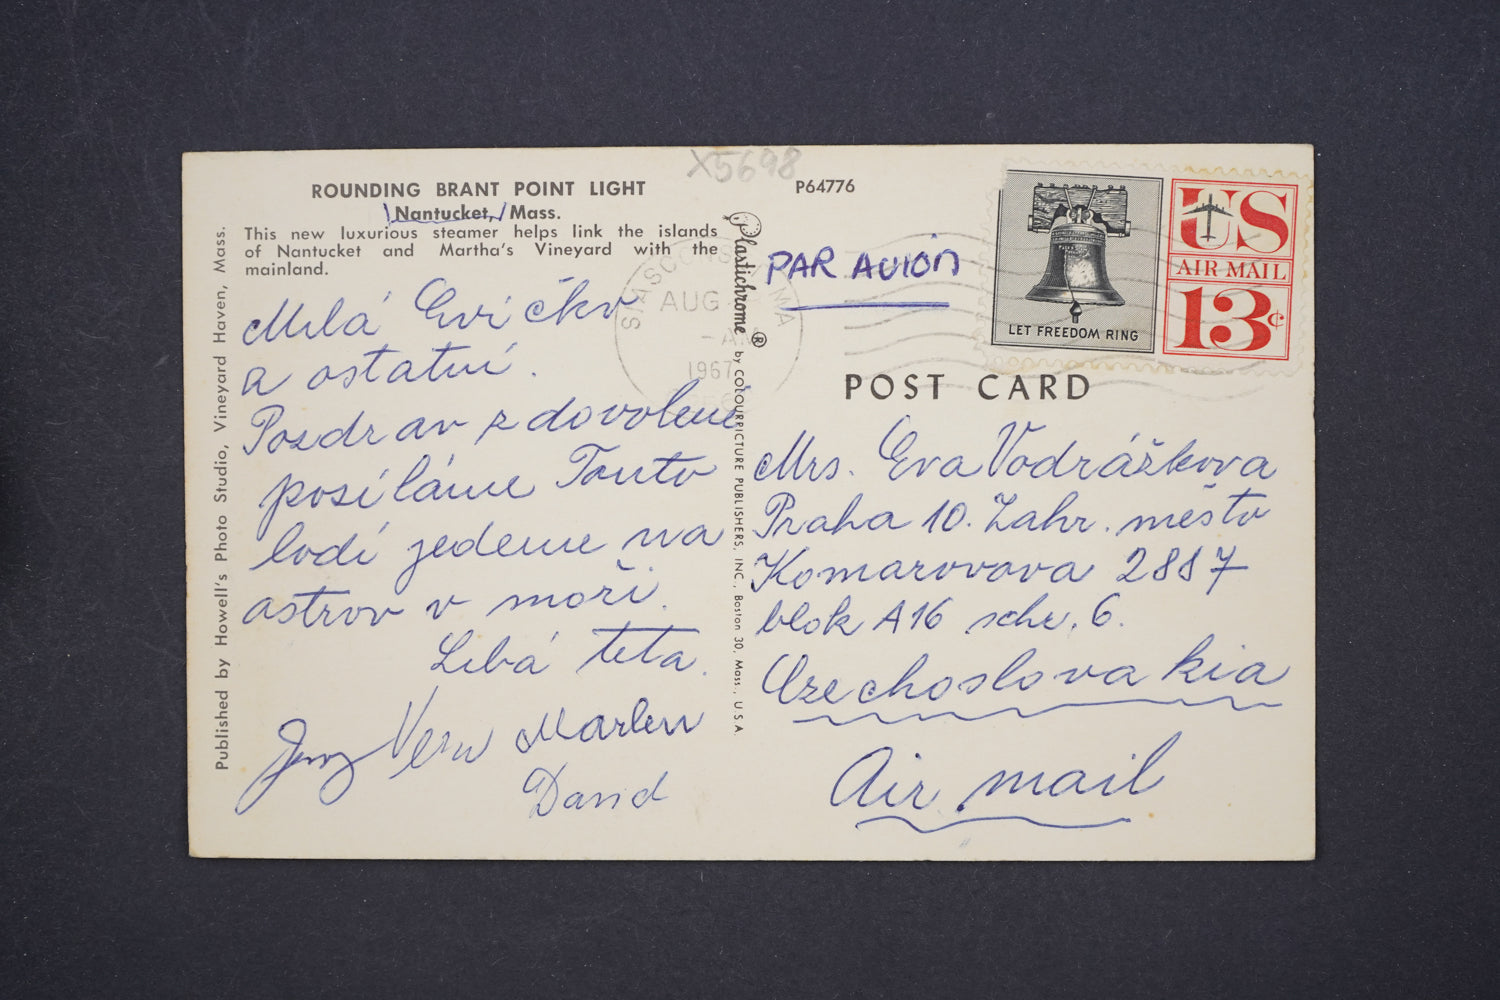 X5698
ROUNDING BRANT POINT LIGHT
Nantucket, Mass.
This new luxurious steamer helps link the islands
of Nantucket and Martha's Vineyard with the
mainland.
P64776
Published by Howell's Photo Studio, Vineyard Haven, Mass.
Milá Evičko
a ostatní.
Pozdrav z dovolene
posíláme Touto
lodí jedeme na
ostrov v moři.
Libá teta.
Jerry Věra Marlen
David
Plastichrome ® by COLOURPICTURE PUBLISHERS, INC., Boston 30, Mass., U.S.A.
SIASCONSET MA
AUG
-AM
1967
PAR AVION
LET FREEDOM RING
US
AIR MAIL
13c
POST CARD
Mrs. Eva Vodrážkova
Praha 10. Zahr. město
Komarovova 2887
blok A16 sch. 6.
Czechoslovakia
Air mail